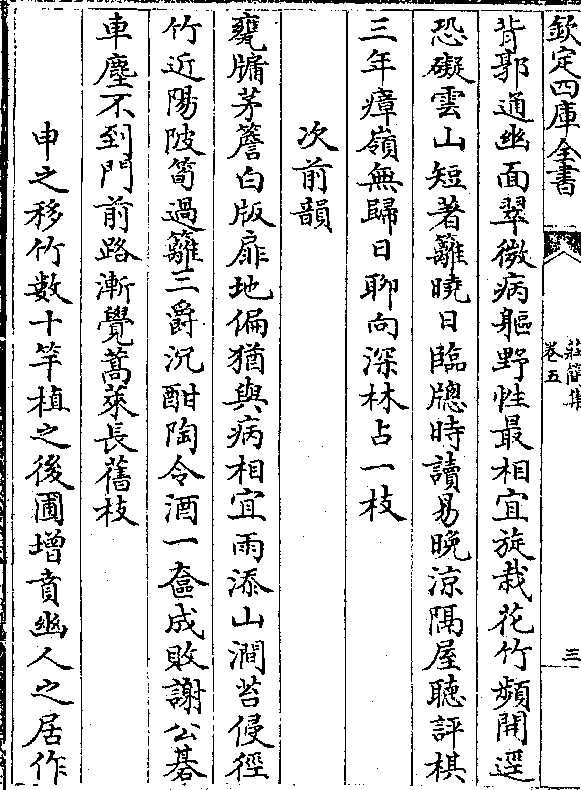 欽定四庫全書
莊簡集
卷五
三
背郭通幽面翠微病軀野性最相宜旋栽花竹頻開逕
恐礙雲山短著籬曉日臨牕時讀易晚涼隔屋聽評棋
三年瘴嶺無歸日聊向深林占一枝
次前韻
甕牖茅簷白版扉地偏猶與病相宜雨添山澗苔侵徑
竹近陽陂筍過籬三爵沉酣陶令酒一奩成敗謝公棊
車塵不到門前路漸覺蒿萊長舊枝
申之移竹數十竿植之後圃增賁幽人之居作